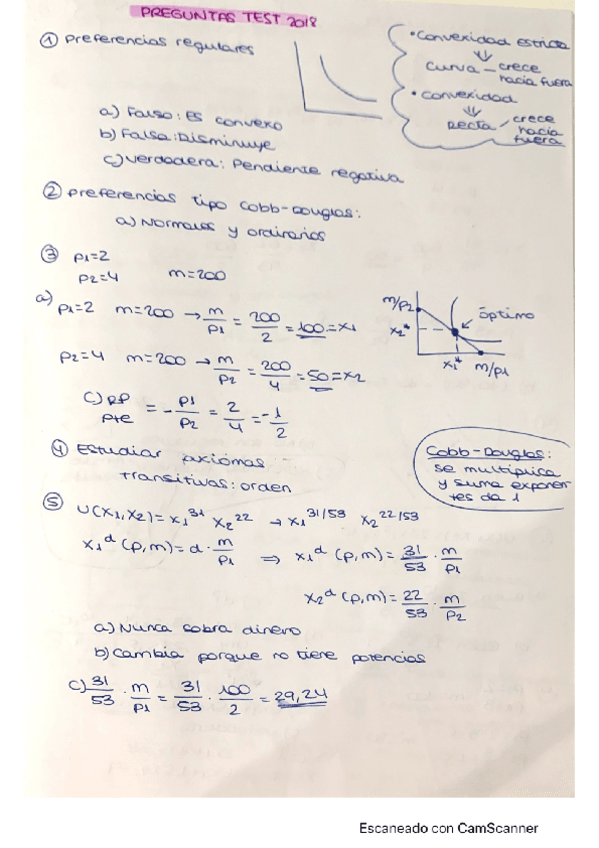 PREGUNTAS TEST 2018
① Preferencias regulares
• Convexidad estricta
⇓
Curva – crece hacia fuera
• Convexidad
⇓
Recta – crece hacia fuera
a) Falso: Es convexo
b) Falsa: Disminuye
c) Verdadera: Pendiente negativa
② Preferencias tipo Cobb-Douglas:
a) Normales y ordinarios
③ p1=2
p2=4 m=200
a) p1=2 m=200 → m/p1 = 200/2 = 100 = x1
p2=4 m=200 → m/p2 = 200/4 = 50 = x2
m/p2
x2*
óptimo
x1* m/p1
c) RP pte = - p1/p2 = 2/4 = - 1/2
④ Estudiar axiomas
transitivas: orden
Cobb-Douglas:
se multiplica
y suma exponen
tes da 1
⑤ U(x1,x2) = x1^31 x2^22 → x1^31/53 x2^22/53
x1^d (p,m) = α · m/p1 ⇒ x1^d (p,m) = 31/53 · m/p1
x2^d (p,m) = 22/53 · m/p2
a) Nunca sobra dinero
b) Cambia porque no tiene potencias
c) 31/53 · m/p1 = 31/53 · 100/2 = 29,24
Escaneado con CamScanner